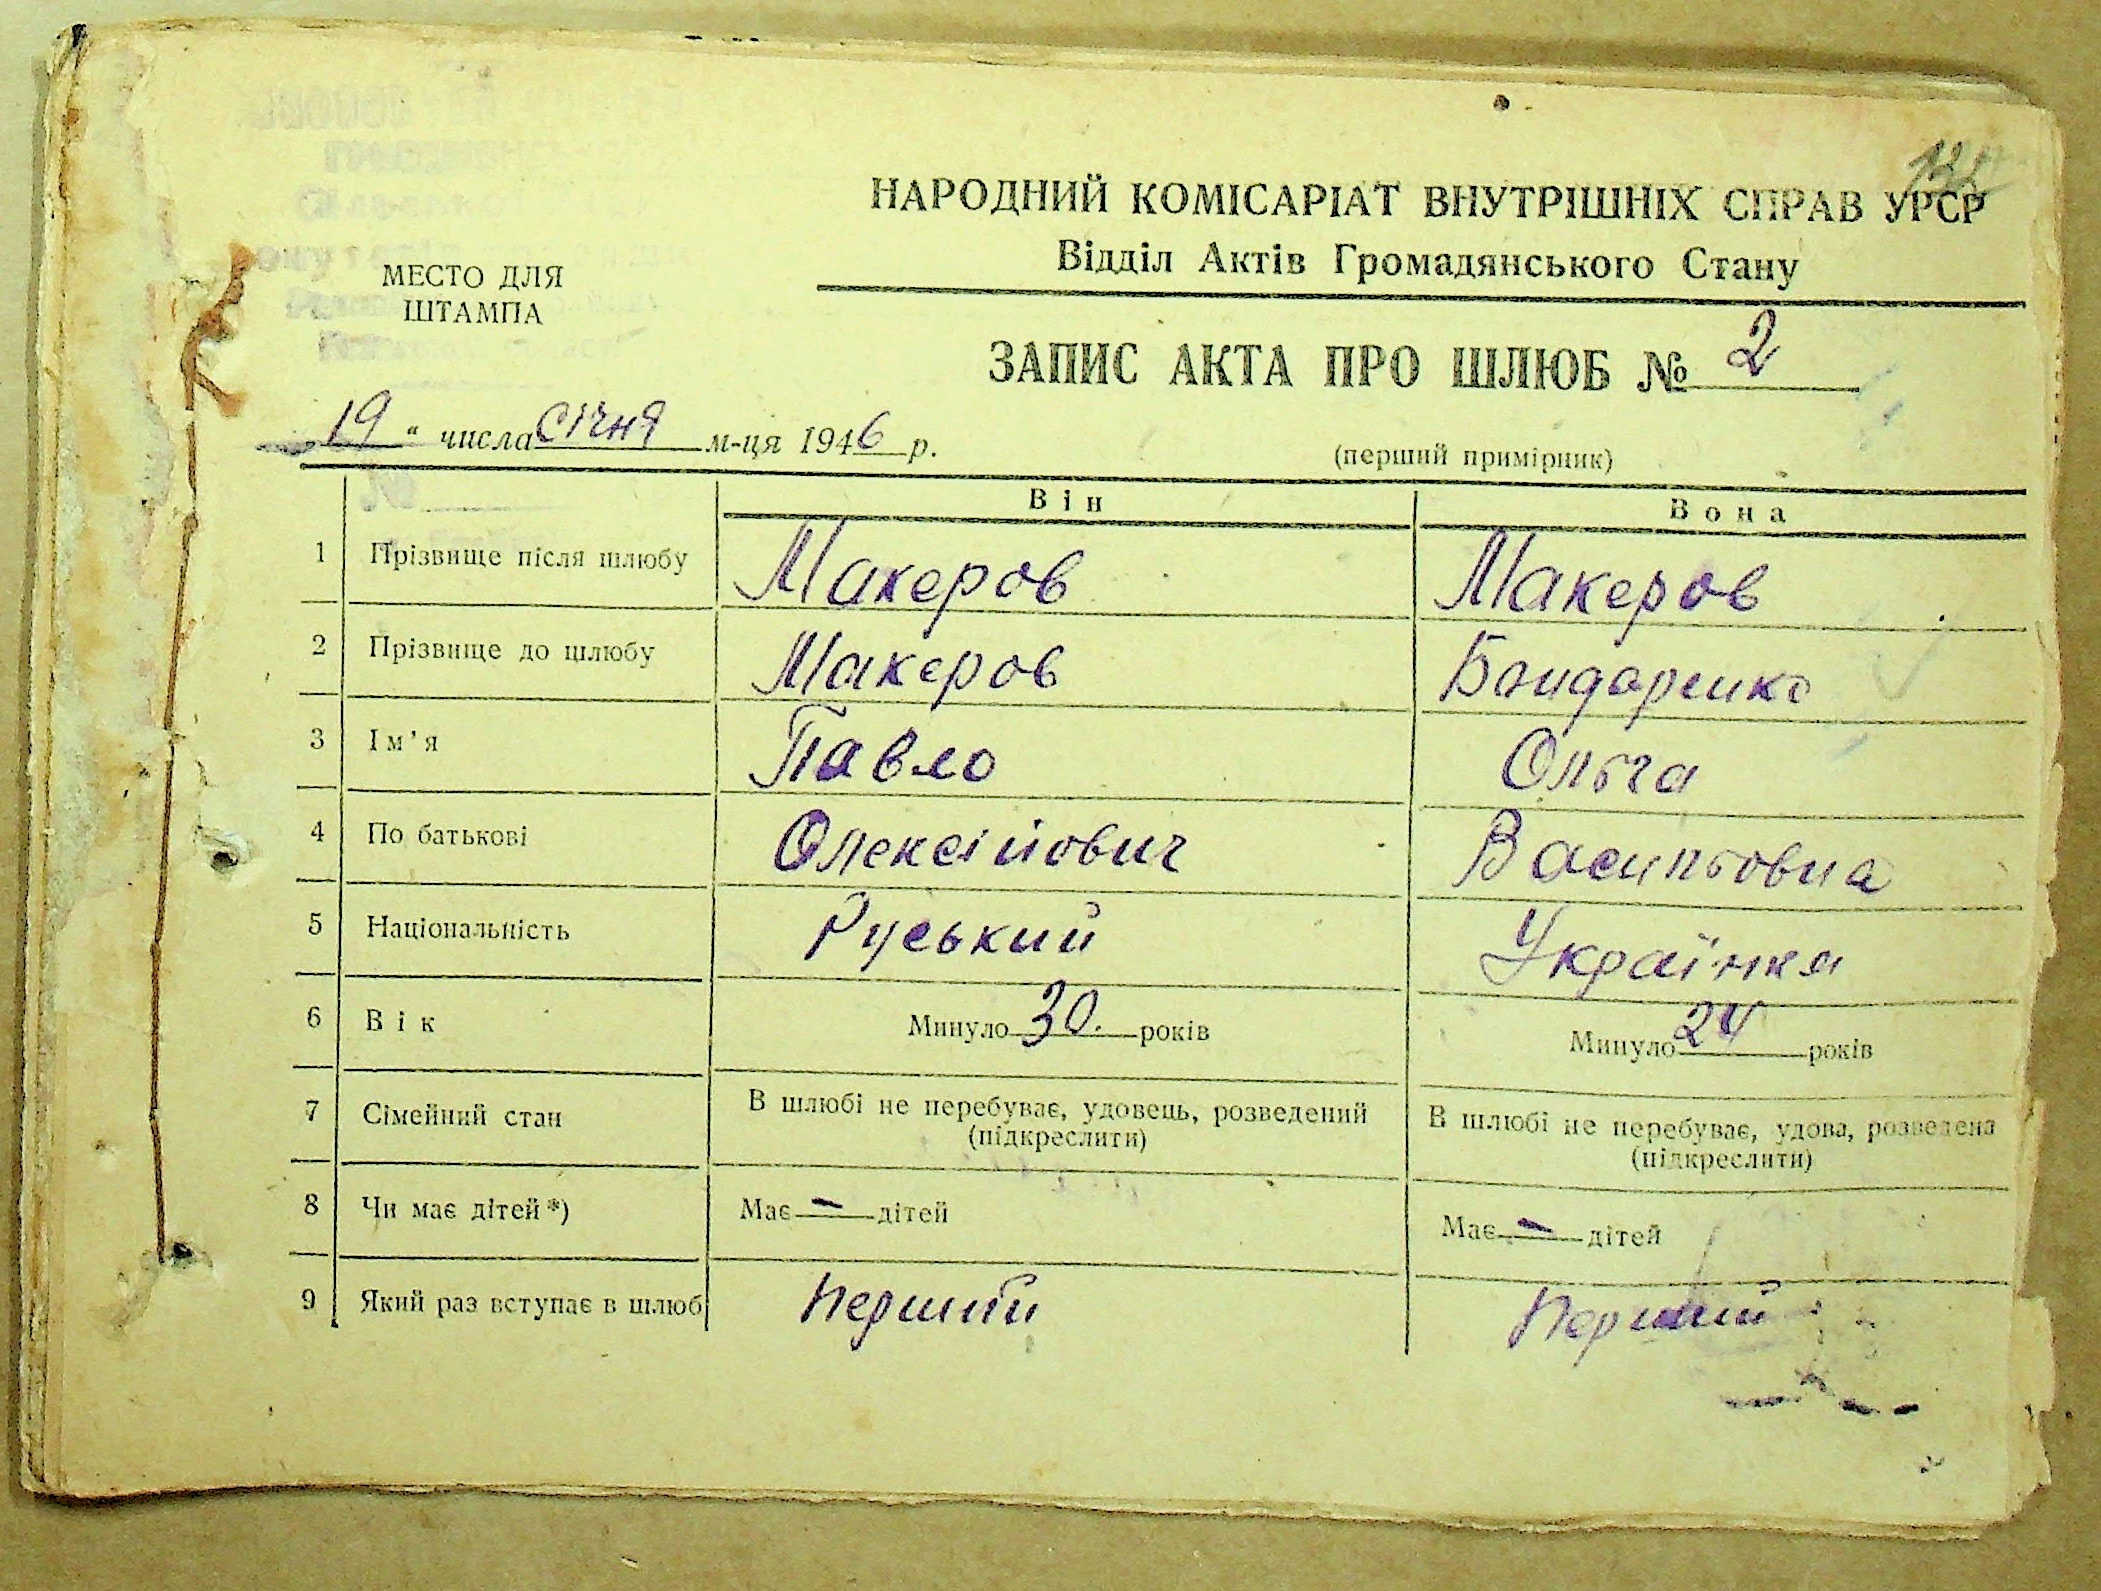 НАРОДНИЙ КОМІСАРІАТ ВНУТРІШНІХ СПРАВ УРСР
Відділ Актів Громадянського Стану
МЕСТО ДЛЯ
ШТАМПА
ЗАПИС АКТА ПРО ШЛЮБ № 2
„19“ числа січня м-ця 1946 р.
(перший примірник)
Він Вона
1 Прізвище після шлюбу Макеров Макеров
2 Прізвище до шлюбу Макеров Бондаренко
3 Ім’я Павло Ольга
4 По батькові Олексійович Васильовна
5 Національність Руський Українка
6 Вік Минуло 30. років Минуло 24 років
7 Сімейний стан В шлюбі не перебуває, удовець, розведений В шлюбі не перебуває, удова, розведена
(підкреслити) (підкреслити)
8 Чи має дітей*) Має — дітей Має — дітей
9 Який раз вступає в шлюб Перший Перший